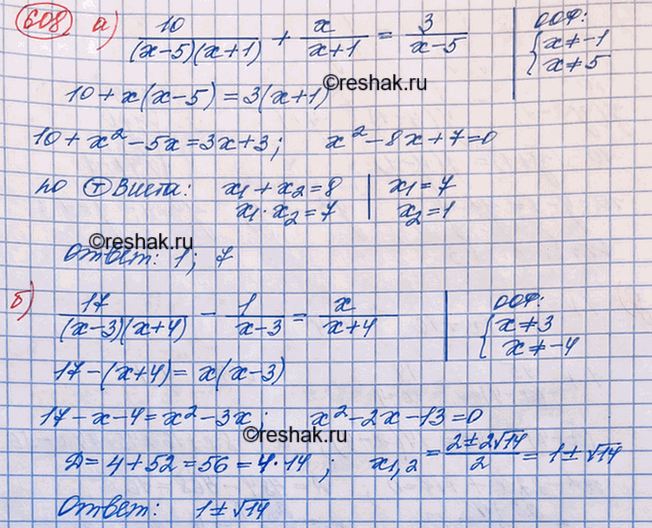 608 а) 10/((x-5)(x+1)) + x/(x+1) = 3/(x-5) | ООФ: { x≠-1 x≠5
©reshak.ru
10+x(x-5)=3(x+1)
10+x²-5x=3x+3; x²-8x+7=0
по Т Виета: x₁+x₂=8 | x₁=7
x₁·x₂=7 | x₂=1
©reshak.ru
Ответ: 1; 7
б) 17/((x-3)(x+4)) - 1/(x-3) = x/(x+4) | ООФ: { x≠3 x≠-4
17-(x+4)=x(x-3)
17-x-4=x²-3x; x²-2x-13=0
©reshak.ru
Д=4+52=56=4·14; x₁,₂=(2±2√14)/2=1±√14
Ответ: 1±√14